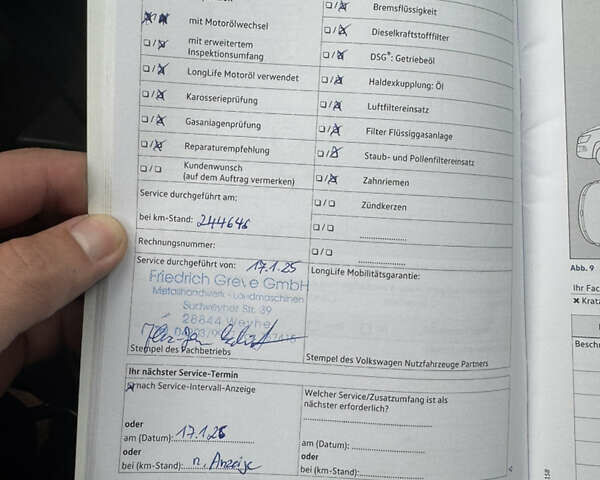 Bremsflüssigkeit
mit Motorölwechsel
Dieselkraftstofffilter
mit erweitertem
Inspektionsumfang
DSG®: Getriebeöl
LongLife Motoröl verwendet
Haldexkupplung: Öl
Karosserieprüfung
Luftfiltereinsatz
Gasanlagenprüfung
Filter Flüssiggasanlage
Reparaturempfehlung
Staub- und Pollenfiltereinsatz
Kundenwunsch
(auf dem Auftrag vermerken)
Zahnriemen
Service durchgeführt am:
Zündkerzen
bei km-Stand: 244646
Rechnungsnummer:
Service durchgeführt von: 17.1.25
LongLife Mobilitätsgarantie:
Friedrich Greve GmbH
Metallhandwerk - Landmaschinen
Sudweyher Str. 39
28844 Weyhe
Stempel des Fachbetriebs
Stempel des Volkswagen Nutzfahrzeuge Partners
Ihr nächster Service-Termin
nach Service-Intervall-Anzeige
Welcher Service/Zusatzumfang ist als
nächster erforderlich?
oder
am (Datum): 17.1.26
am (Datum):
oder
bei (km-Stand): n. Anzeige
oder
bei (km-Stand):
Abb. 9
Ihr Fac
Kratz
Beschr
158